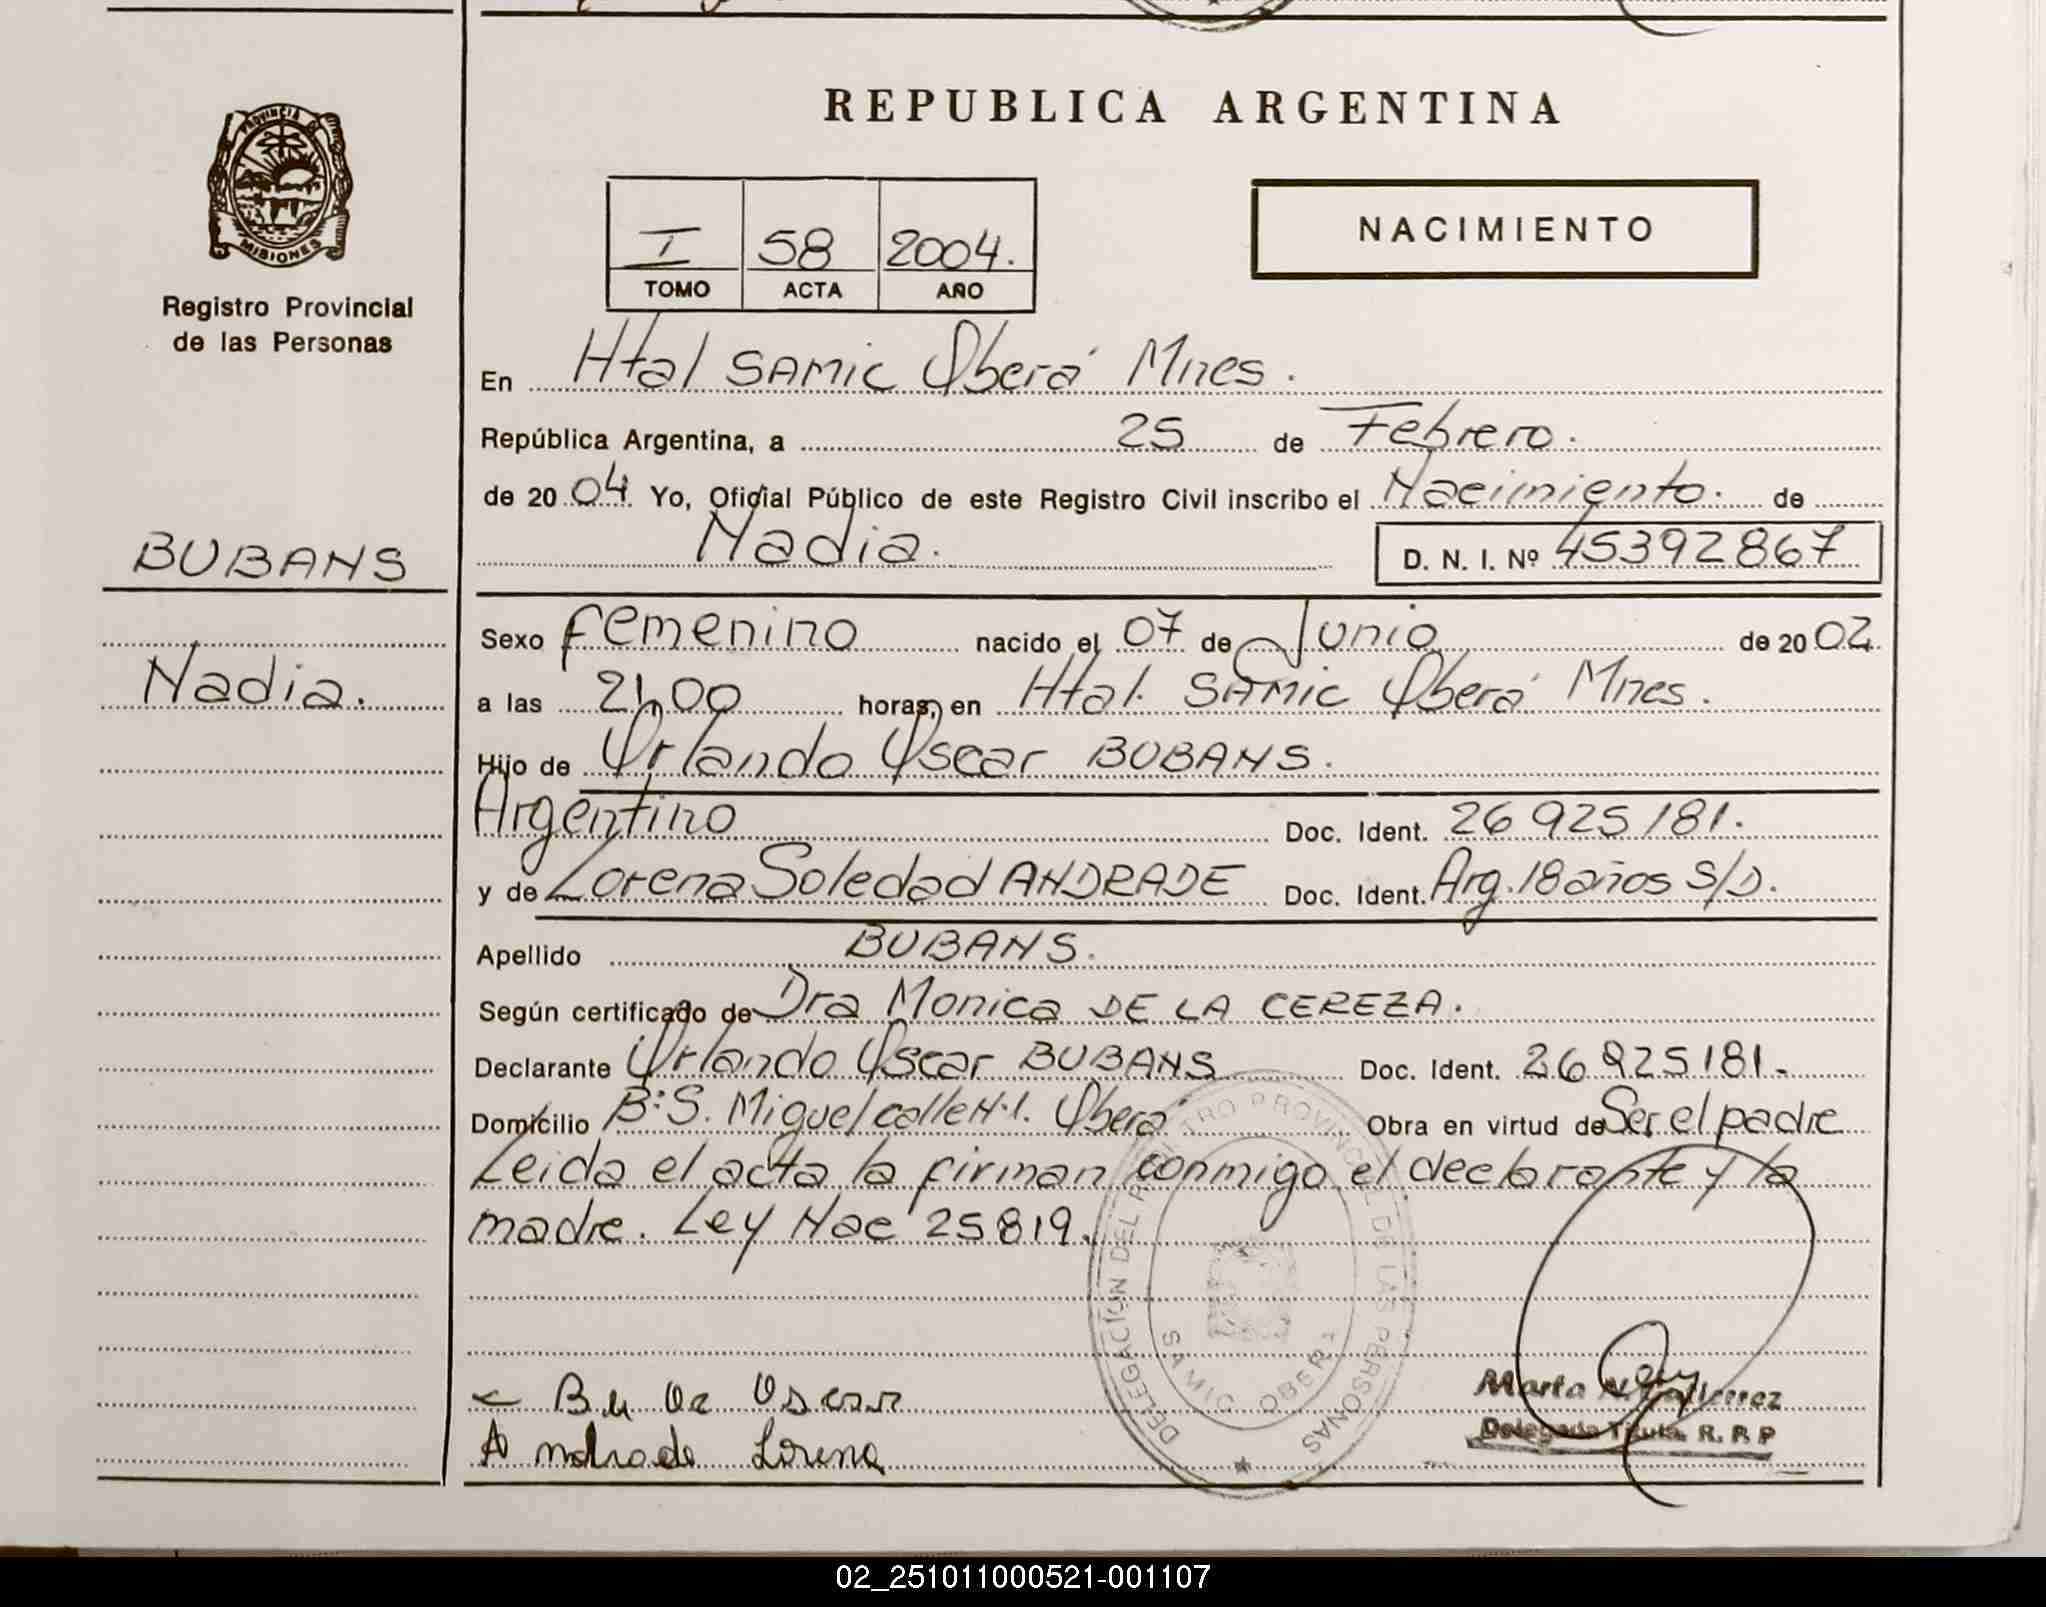 REPUBLICA ARGENTINA
PROVINCIA DE
MISIONES
Registro Provincial
de las Personas
I 58 2004.
TOMO ACTA AÑO
NACIMIENTO
En Htal SAMIC Oberá Mnes.
República Argentina, a 25 de Febrero.
de 20 04 Yo, Oficial Público de este Registro Civil inscribo el Nacimiento. de
Nadia. D. N. I. Nº 45392867
BUBANS
Nadia.
Sexo femenino nacido el 07 de Junio de 20 02.
a las 21,00 horas, en Htal. SAMIC Oberá Mnes.
Hijo de Orlando Oscar BUBANS.
Argentino Doc. Ident. 26 925 181.
y de Lorena Soledad ANDRADE Doc. Ident. Arg. 18 años S/D.
Apellido BUBANS.
Según certificado de Dra Monica DE LA CEREZA.
Declarante Orlando Oscar BUBANS Doc. Ident. 26 925 181.
Domicilio B: S. Miguel calle N.1. Oberá Obra en virtud de Ser el padre
Leida el acta la firman conmigo el declarante y la
madre. Ley Nac 25819.
DELEGACIÓN DEL REGISTRO PROVINCIAL DE LAS PERSONAS
SAMIC OBERA
Oscar
Andrade Lorena
Marta N. Gutierrez
Delegada Titular R. P. P
02_251011000521-001107